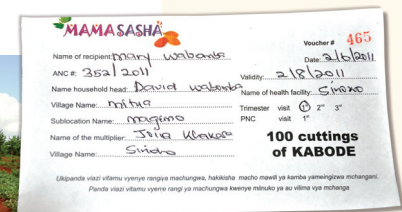 MAMASASHA
Voucher # 465
Name of recipient: Mary Wabomba Date: 2/6/2011
ANC #: 352/2011 Validity: 2/8/2011
Name household head: David Wabomba Name of health facility: Sirisko
Village Name: Mitua Trimester visit 1° 2° 3°
Sublocation Name: Magimo PNC visit 1°
Name of the multiplier: Julia Khakasa 100 cuttings
Village Name: Sirisho of KABODE
Ukipanda viazi vitamu vyenye rangiya machungwa, hakikisha macho mawili ya kamba yameingizwa mchangani.
Panda viazi vitamu vyenre rangi ya machungwa kwenye miinuko ya au vilima vya mchanga